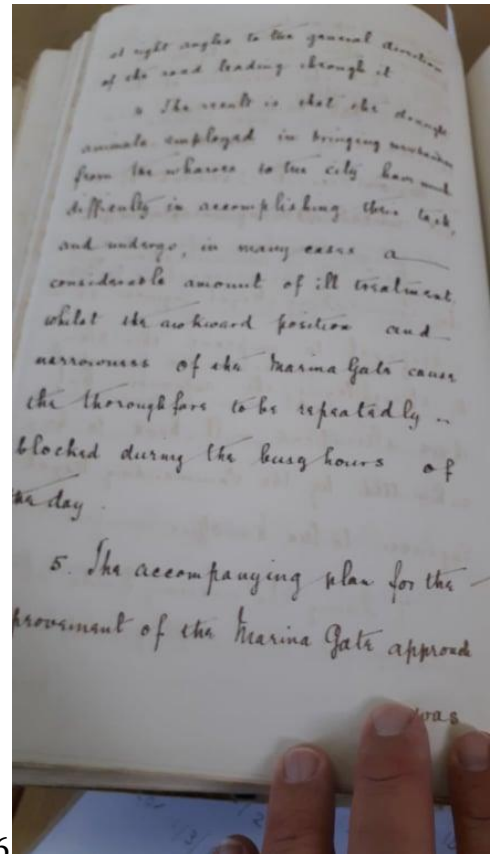 at right angles to the general direction
of the road leading through it
4 The result is that the draught
animals employed in bringing
from the wharves to the city have much
difficulty in accomplishing their task,
and undergo, in many cases a
considerable amount of ill treatment,
whilst the awkward position and
narrowness of the Marina Gate cause
the thoroughfare to be repeatedly
blocked during the busy hours of
the day.
5. The accompanying plan for the
provement of the Marina Gate approach
was
6